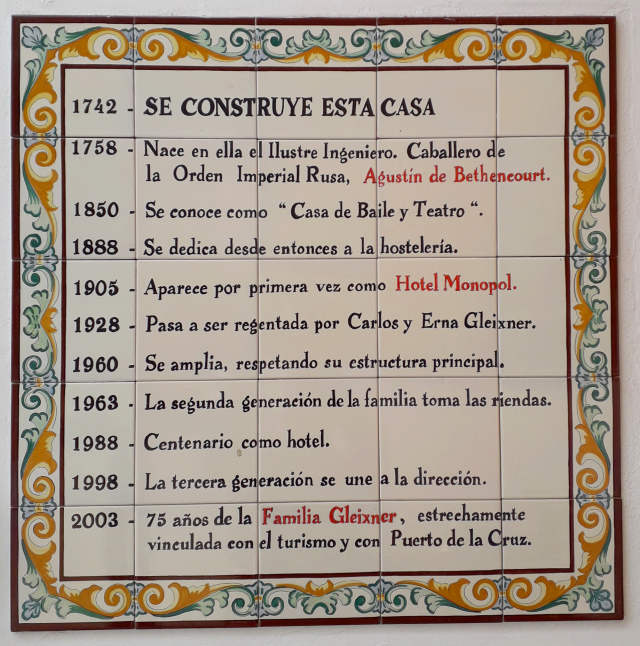 1742 - SE CONSTRUYE ESTA CASA
1758 - Nace en ella el Ilustre Ingeniero. Caballero de
la Orden Imperial Rusa, Agustín de Bethencourt.
1850 - Se conoce como “Casa de Baile y Teatro“.
1888 - Se dedica desde entonces a la hostelería.
1905 - Aparece por primera vez como Hotel Monopol.
1928 - Pasa a ser regentada por Carlos y Erna Gleixner.
1960 - Se amplia, respetando su estructura principal.
1963 - La segunda generación de la familia toma las riendas.
1988 - Centenario como hotel.
1998 - La tercera generación se une a la dirección.
2003 - 75 años de la Familia Gleixner, estrechamente
vinculada con el turismo y con Puerto de la Cruz.